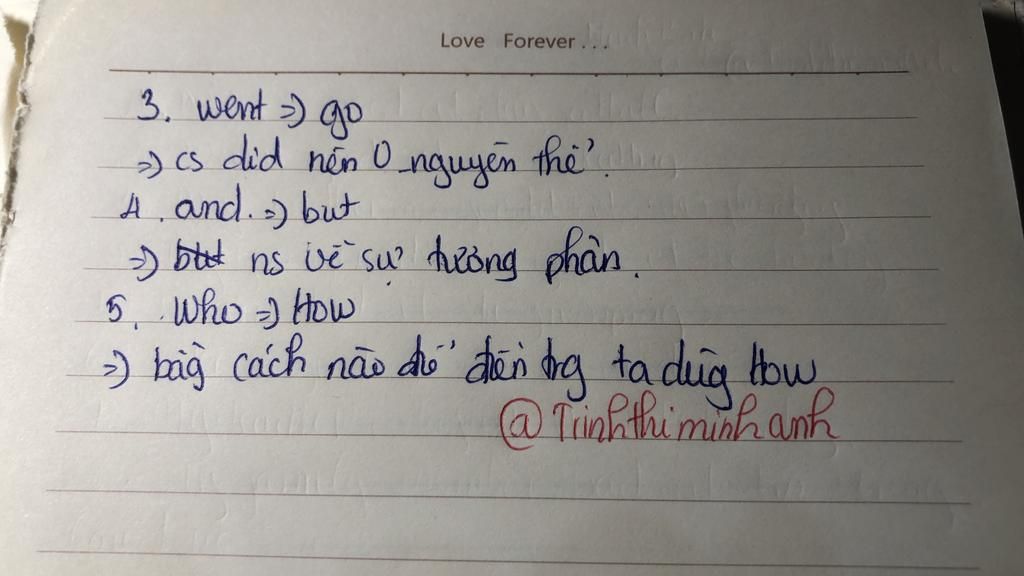 Love Forever...
3. went => go
=> cs did nên Ở nguyên thể.
4. and. => but
=> ns về sự tương phản.
5. Who => How
=> bằg cách nào để đến trg ta dùg How
@Trinhthiminhanh